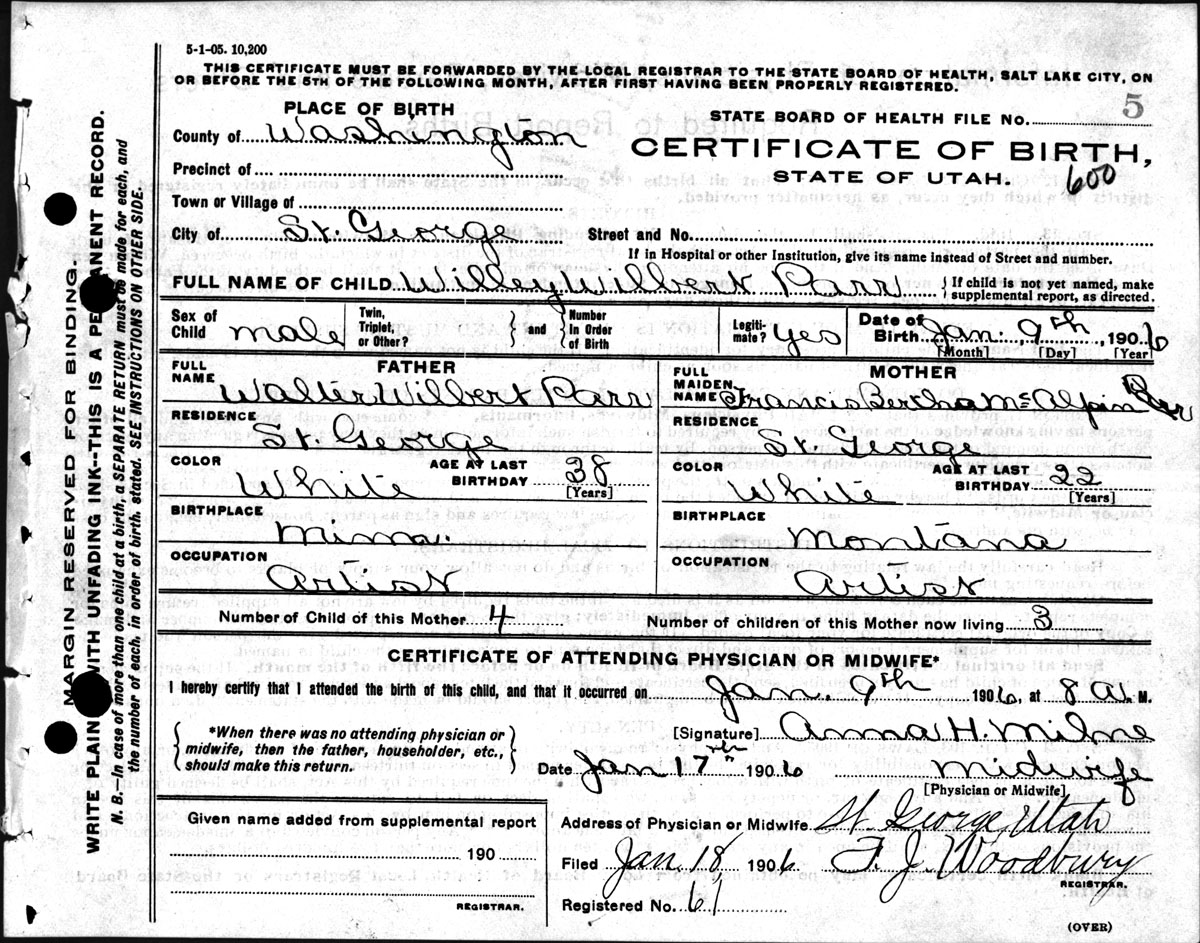 5-1-05. 10,200
THIS CERTIFICATE MUST BE FORWARDED BY THE LOCAL REGISTRAR TO THE STATE BOARD OF HEALTH, SALT LAKE CITY, ON
OR BEFORE THE 5TH OF THE FOLLOWING MONTH, AFTER FIRST HAVING BEEN PROPERLY REGISTERED.
PLACE OF BIRTH
County of Washington
Precinct of
Town or Village of
City of St. George
STATE BOARD OF HEALTH FILE NO. 5
CERTIFICATE OF BIRTH,
STATE OF UTAH. 600
Street and No.
If in Hospital or other Institution, give its name instead of Street and number.
FULL NAME OF CHILD Willey Wilbert Parr { If child is not yet named, make
supplemental report, as directed.
Sex of Child male Twin, Triplet, or Other? } and { Number In Order of Birth Legiti-mate? yes Date of Birth Jan. 9th, 1906
[Month] [Day] [Year]
FATHER
FULL NAME Walter Wilbert Parr
RESIDENCE St. George
COLOR White AGE AT LAST BIRTHDAY 38
[Years]
BIRTHPLACE Minna.
OCCUPATION Artist
MOTHER
FULL MAIDEN NAME Francis Bertha McAlpin
RESIDENCE St. George
COLOR White AGE AT LAST BIRTHDAY 22
[Years]
BIRTHPLACE Montana
OCCUPATION Artist
Number of Child of this Mother 4 Number of children of this Mother now living 3
CERTIFICATE OF ATTENDING PHYSICIAN OR MIDWIFE*
I hereby certify that I attended the birth of this child, and that it occurred on Jan. 9th 1906, at 8 A. M.
{ *When there was no attending physician or
midwife, then the father, householder, etc.,
should make this return. }
[Signature] Anna H. Milne
Date Jan 17th 1906 midwife
[Physician or Midwife]
Given name added from supplemental report
190
REGISTRAR.
Address of Physician or Midwife St George Utah
Filed Jan 18 1906 F. J. Woodbury
REGISTRAR.
Registered No. 61
(OVER)
MARGIN RESERVED FOR BINDING
WRITE PLAIN WITH UNFADING INK--THIS IS A PERMANENT RECORD.
N. B.—In case of more than one child at a birth, a SEPARATE RETURN must be made for each, and
the number of each, in order of birth, stated. SEE INSTRUCTIONS ON OTHER SIDE.